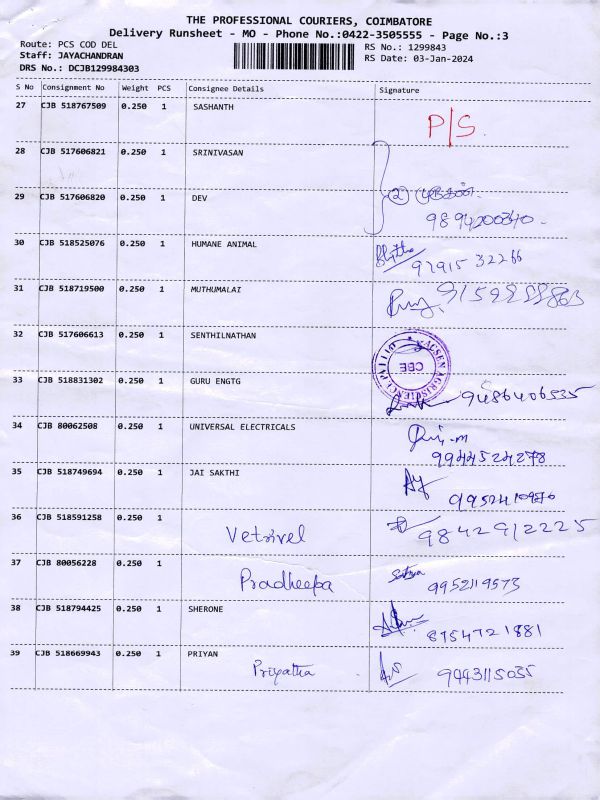 THE PROFESSIONAL COURIERS, COIMBATORE
Delivery Runsheet - MO - Phone No.:0422-3505555 - Page No.:3
Route: PCS COD DEL RS No.: 1299843
Staff: JAYACHANDRAN RS Date: 03-Jan-2024
DRS No.: DCJB129984303
S No Consignment No Weight PCS Consignee Details Signature
27 CJB 518767509 0.250 1 SASHANTH
P/S
28 CJB 517606821 0.250 1 SRINIVASAN
29 CJB 517606820 0.250 1 DEV
②
9894200340
30 CJB 518525076 0.250 1 HUMANE ANIMAL
97915 32266
31 CJB 518719500 0.250 1 MUTHUMALAI
32 CJB 517606613 0.250 1 SENTHILNATHAN
CBE
33 CJB 518831302 0.250 1 GURU ENGTG
9486406535
34 CJB 80062508 0.250 1 UNIVERSAL ELECTRICALS
9944524278
35 CJB 518749694 0.250 1 JAI SAKTHI
36 CJB 518591258 0.250 1
Vetrivel 9842912225
37 CJB 80056228 0.250 1
Pradheepa Sathya 9952119573
38 CJB 518794425 0.250 1 SHERONE
8754721881
39 CJB 518669943 0.250 1 PRIYAN
Priyatha 9443115035